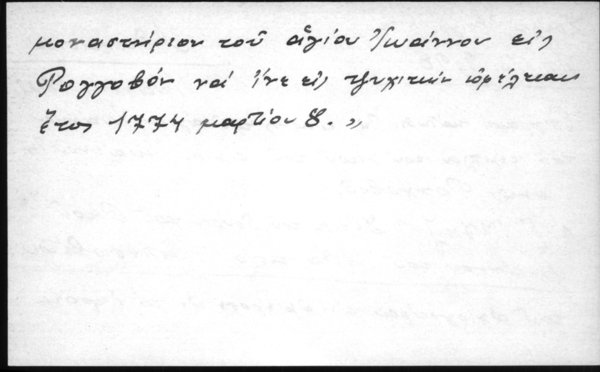 μοναστήριον τοῦ ἁγίου Ἰωάννου εἰς
Ρογγοβόν ναί ἶνε εἰς ψυχικήν ὠφέλειαν
ἔτος 1774 μαρτίου 8. „